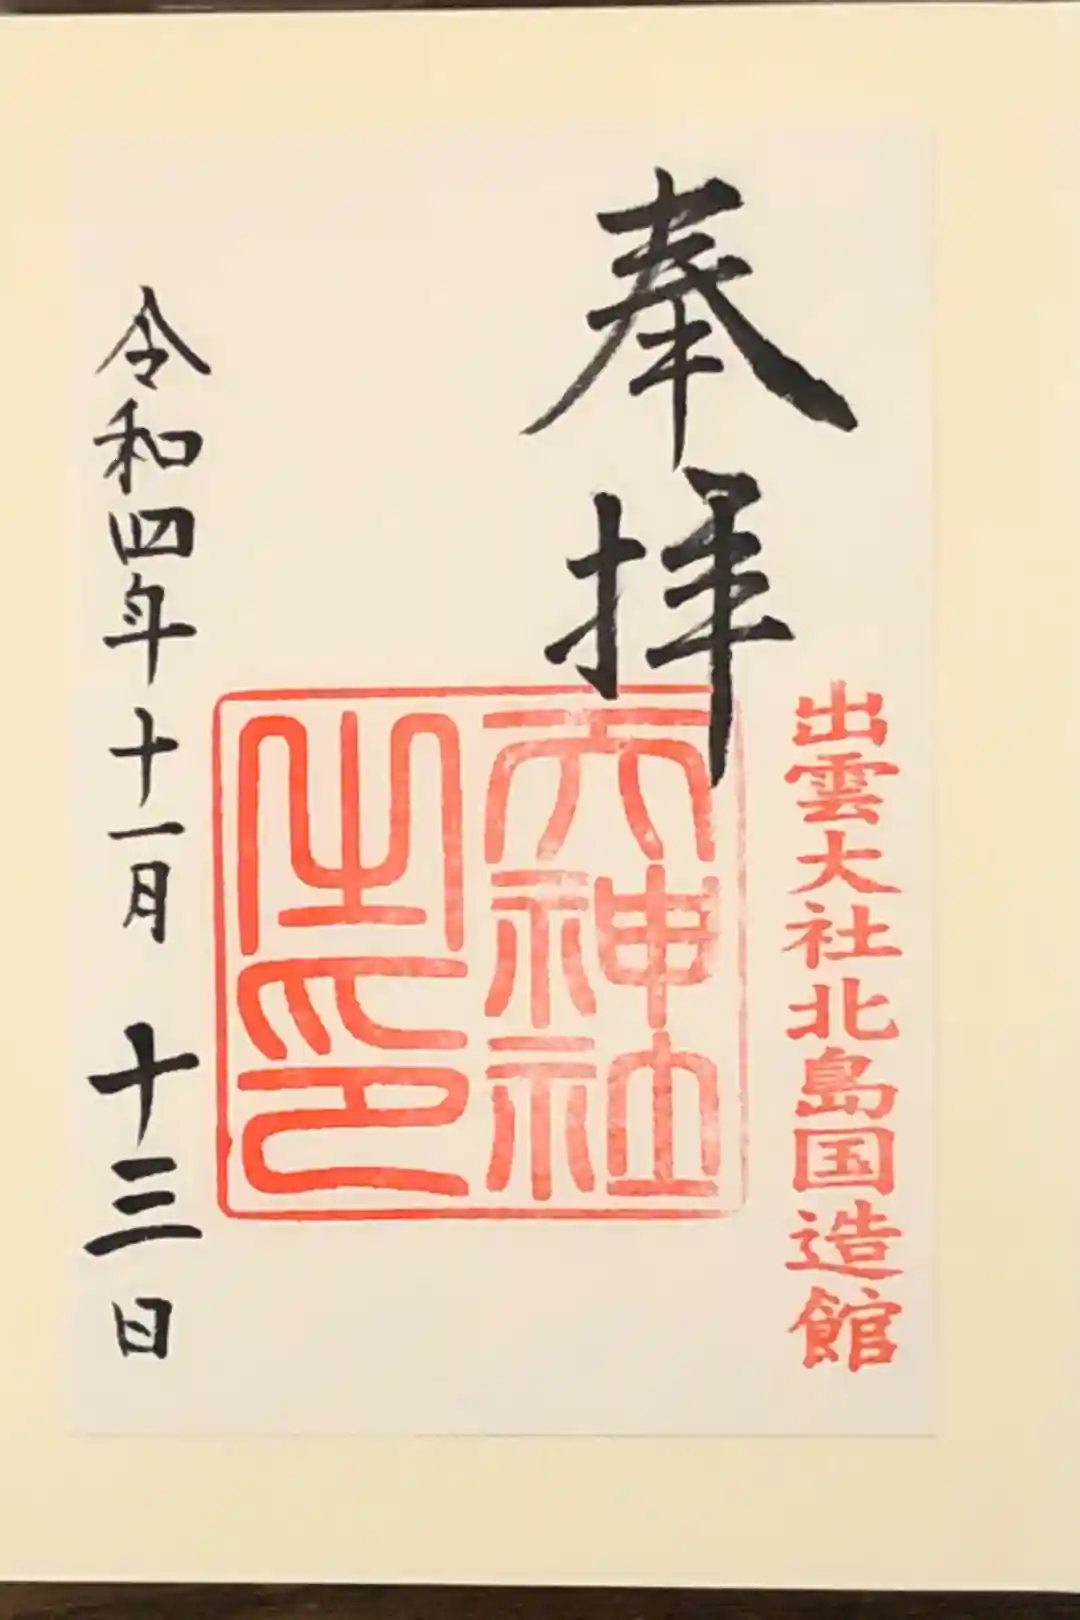 奉拝
出雲大社北島国造館
六神社
之印
令和四年十一月十三日